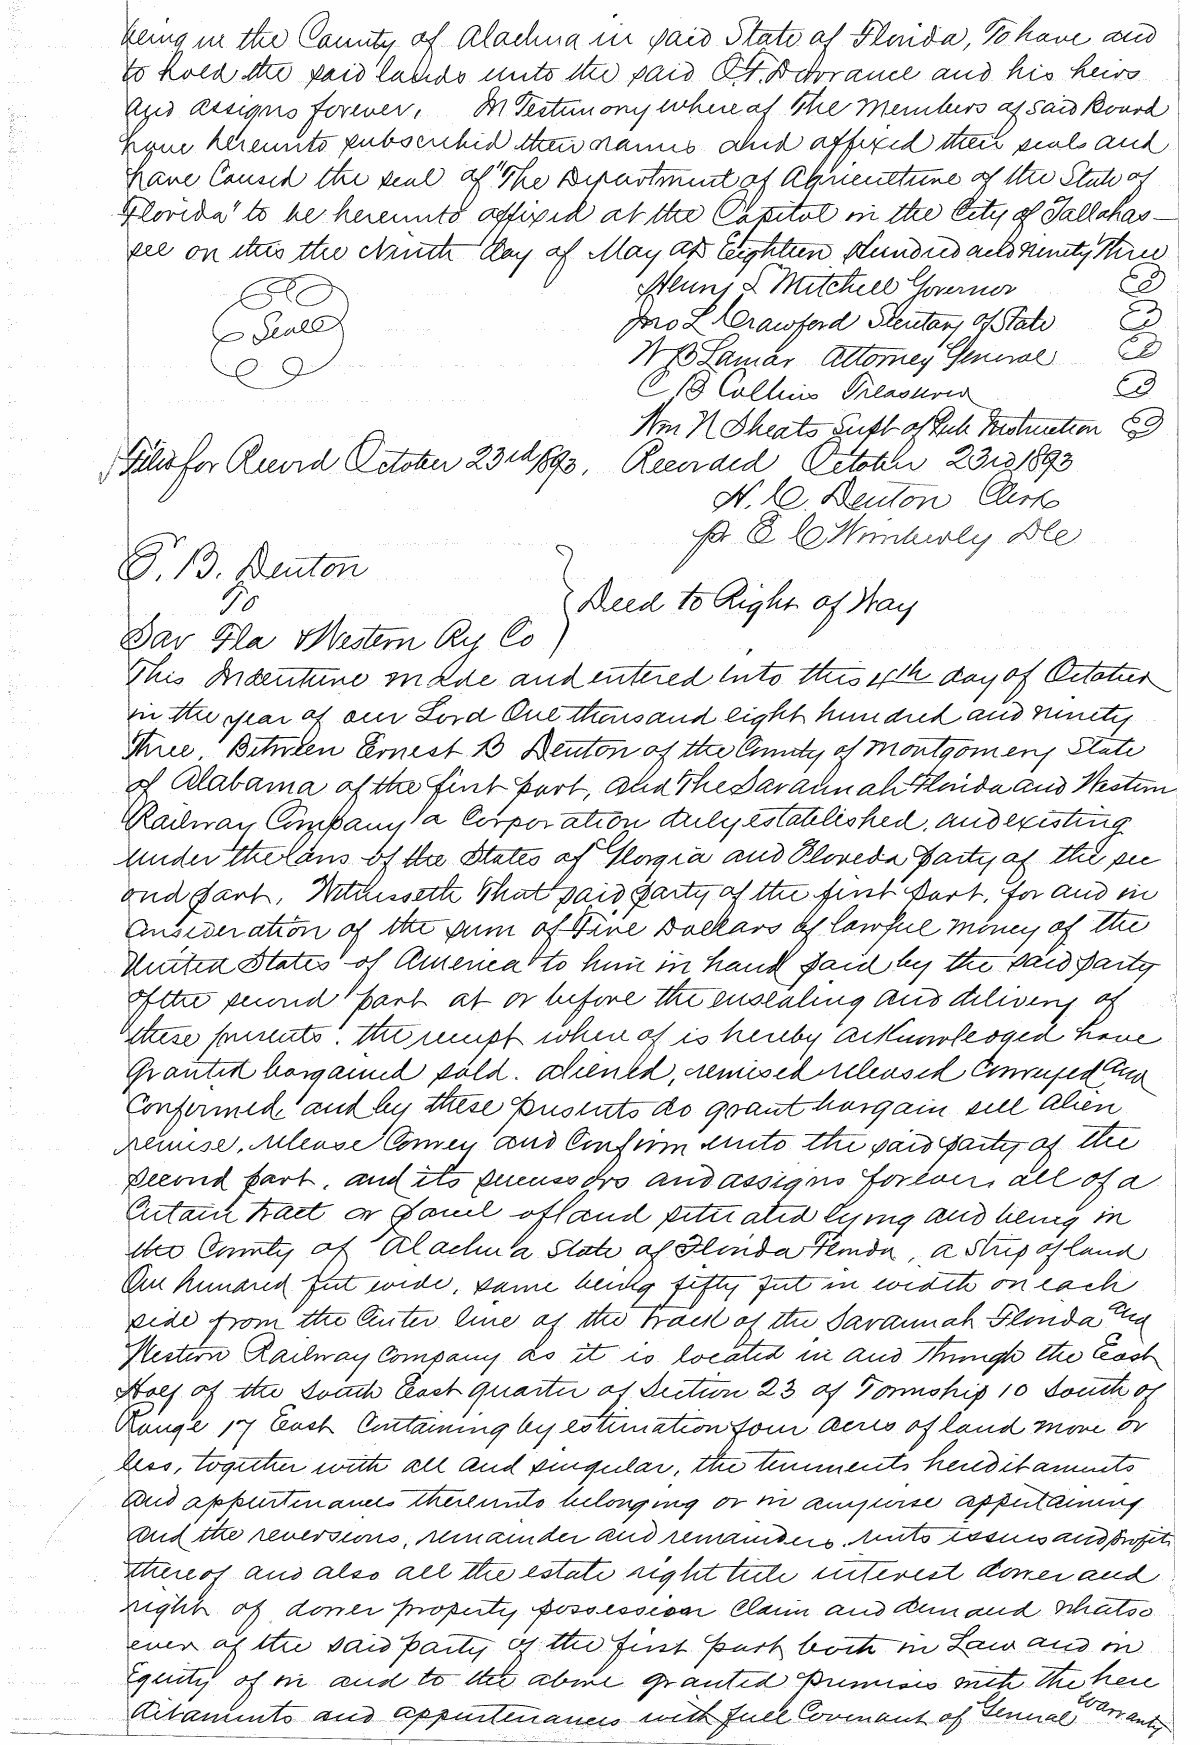 being in the County of Alachua in said State of Florida, To have and
to hold the said lands unto the said O.F. Dorrance and his heirs
and assigns forever, In Testimony where of The Members of said Board
have hereunto subscribed their names and affixed their seals and
have Caused the seal of "The Department of Agriculture of the State of
Florida" to be hereunto affixed at the Capitol in the City of Tallahas–
see on this the Ninth day of May AD Eighteen Hundred and ninety Three
Henry L Mitchell Governor
Seal
Jno L Crawford Secretary of State
W B Lamar Attorney General
C B Collins Treasurer
Wm N Sheats Supt of Pub Instruction
Filed for Record October 23rd 1893. Recorded October 23rd 1893
H. C. Denton Clerk
pr E C Wimberly DC
E. B. Denton
To
Deed to Right of Way
Sav Fla & Western Ry Co
This Indenture made and entered into this 4th day of October
in the year of our Lord One thousand eight hundred and ninety
three, Between Ernest B Denton of the County of Montgomery State
of Alabama of the first part, and The Savannah Florida and Western
Railway Company a Corporation duly established, and existing
under the laws of the States of Georgia and Florida party of the sec
ond part, Witnesseth That said party of the first part, for and in
Consideration of the sum of Five Dollars of lawful money of the
United States of America to him in hand paid by the said party
of the second part at or before the ensealing and delivery of
these presents. the receipt where of is hereby acknowledged have
Granted bargained sold. aliened, remised released Conveyed and
Confirmed and by these presents do grant bargain sell alien
remise, release Convey and Confirm unto the said party of the
second part, and its successors and assigns forever, all of a
Certain tract or parcel of land situated lying and being in
the County of Alachua State of Florida Florida, a Strip of land
One hundred feet wide, same being fifty feet in width on each
side from the Center line of the track of the Savannah Florida and
Western Railway Company as it is located in and Through the East
Half of the South East quarter of Section 23 of Township 10 South of
Range 17 East Containing by estimation four acres of land more or
less, together with all and singular, the tenements hereditaments
and appurtenances thereunto belonging or in anywise appertaining
and the reversions, remainder and remainders, rents issues and profits
thereof and also all the estate right title interest dower and
right of dower property possession Claim and demand whatso
ever of the said party of the first part both in Law and in
Equity of in and to the above granted premises with the here
ditaments and appurtenances with full Covenant of General warranty